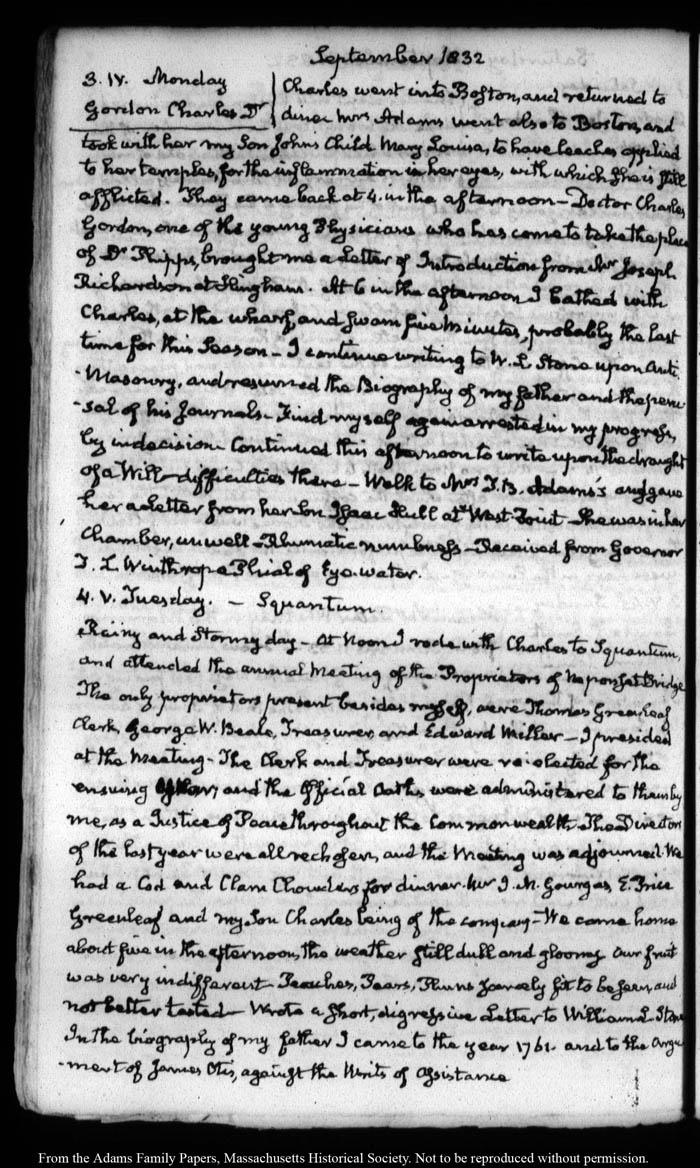 September 1832
3. IV. Monday
Gordon Charles Dr
Charles went into Boston, and returned to
dine. Mrs Adams went also to Boston, and
took with her my Son John's Child Mary Louisa, to have leaches applied
to her temples, for the inflammation in her eyes, with which she is still
afflicted. They came back at 4. in the afternoon — Doctor Charles
Gordon, one of the young Physicians who has come to take the place
of Dr Phipps, brought me a Letter of Introduction from Mr Joseph
Richardson at Hingham. At 6 in the afternoon I bathed with
Charles, at the wharf, and swam five minutes, probably the last
time for this Season — I continue writing to W. L. Stone upon Anti-
-Masonry, and resumed the Biography of my father and the peru
-sal of his Journals — Find myself again arrested in my progress,
by indecision — Continued this afternoon to write upon the draught
of a Will — difficulties there — Walk to Mrs T. B. Adams's and gave
her a Letter from her Son Isaac Hull at West-Point — She was in her
Chamber, unwell — Rhumatic numbness — Received from Governor
T. L. Winthrop a Phial of Eye-water.
4. V. Tuesday. — Squantum.
Rainy and Stormy day — At Noon I rode with Charles to Squantum,
and attended the annual Meeting of the Proprietors of Neponset Bridge
The only proprietors present besides myself, were Thomas Greenleaf
Clerk, George W. Beale, Treasurer and Edward Miller — I presided
at the Meeting — The Clerk and Treasurer were re-elected for the
ensuing year, and the Official Oaths were administered to them by
me, as a Justice of Peace throughout the Commonwealth. The Directors
of the last year were all rechosen, and the Meeting was adjourned. We
had a Cod and Clam Chowder for dinner. Mr J. M. Gourgas, E. Price
Greenleaf and my Son Charles being of the company — We came home
about five in the afternoon, the weather still dull and gloomy Our fruit
was very indifferent — Peaches, Pears, Plums scarcely fit to be seen, and
not better tasted — Wrote a short, digressive Letter to William L. Stone
In the biography of my father I came to the year 1761. and to the Argu
-ment of James Otis, against the Writs of Assistance
From the Adams Family Papers, Massachusetts Historical Society. Not to be reproduced without permission.